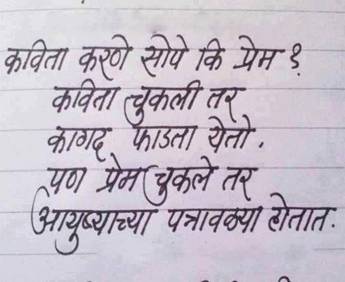 कविता करणे सोपे कि प्रेम ?
कविता चुकली तर
कागद फाडता येतो.
पण प्रेम चुकले तर
आयुष्याच्या पत्रावळ्या होतात.